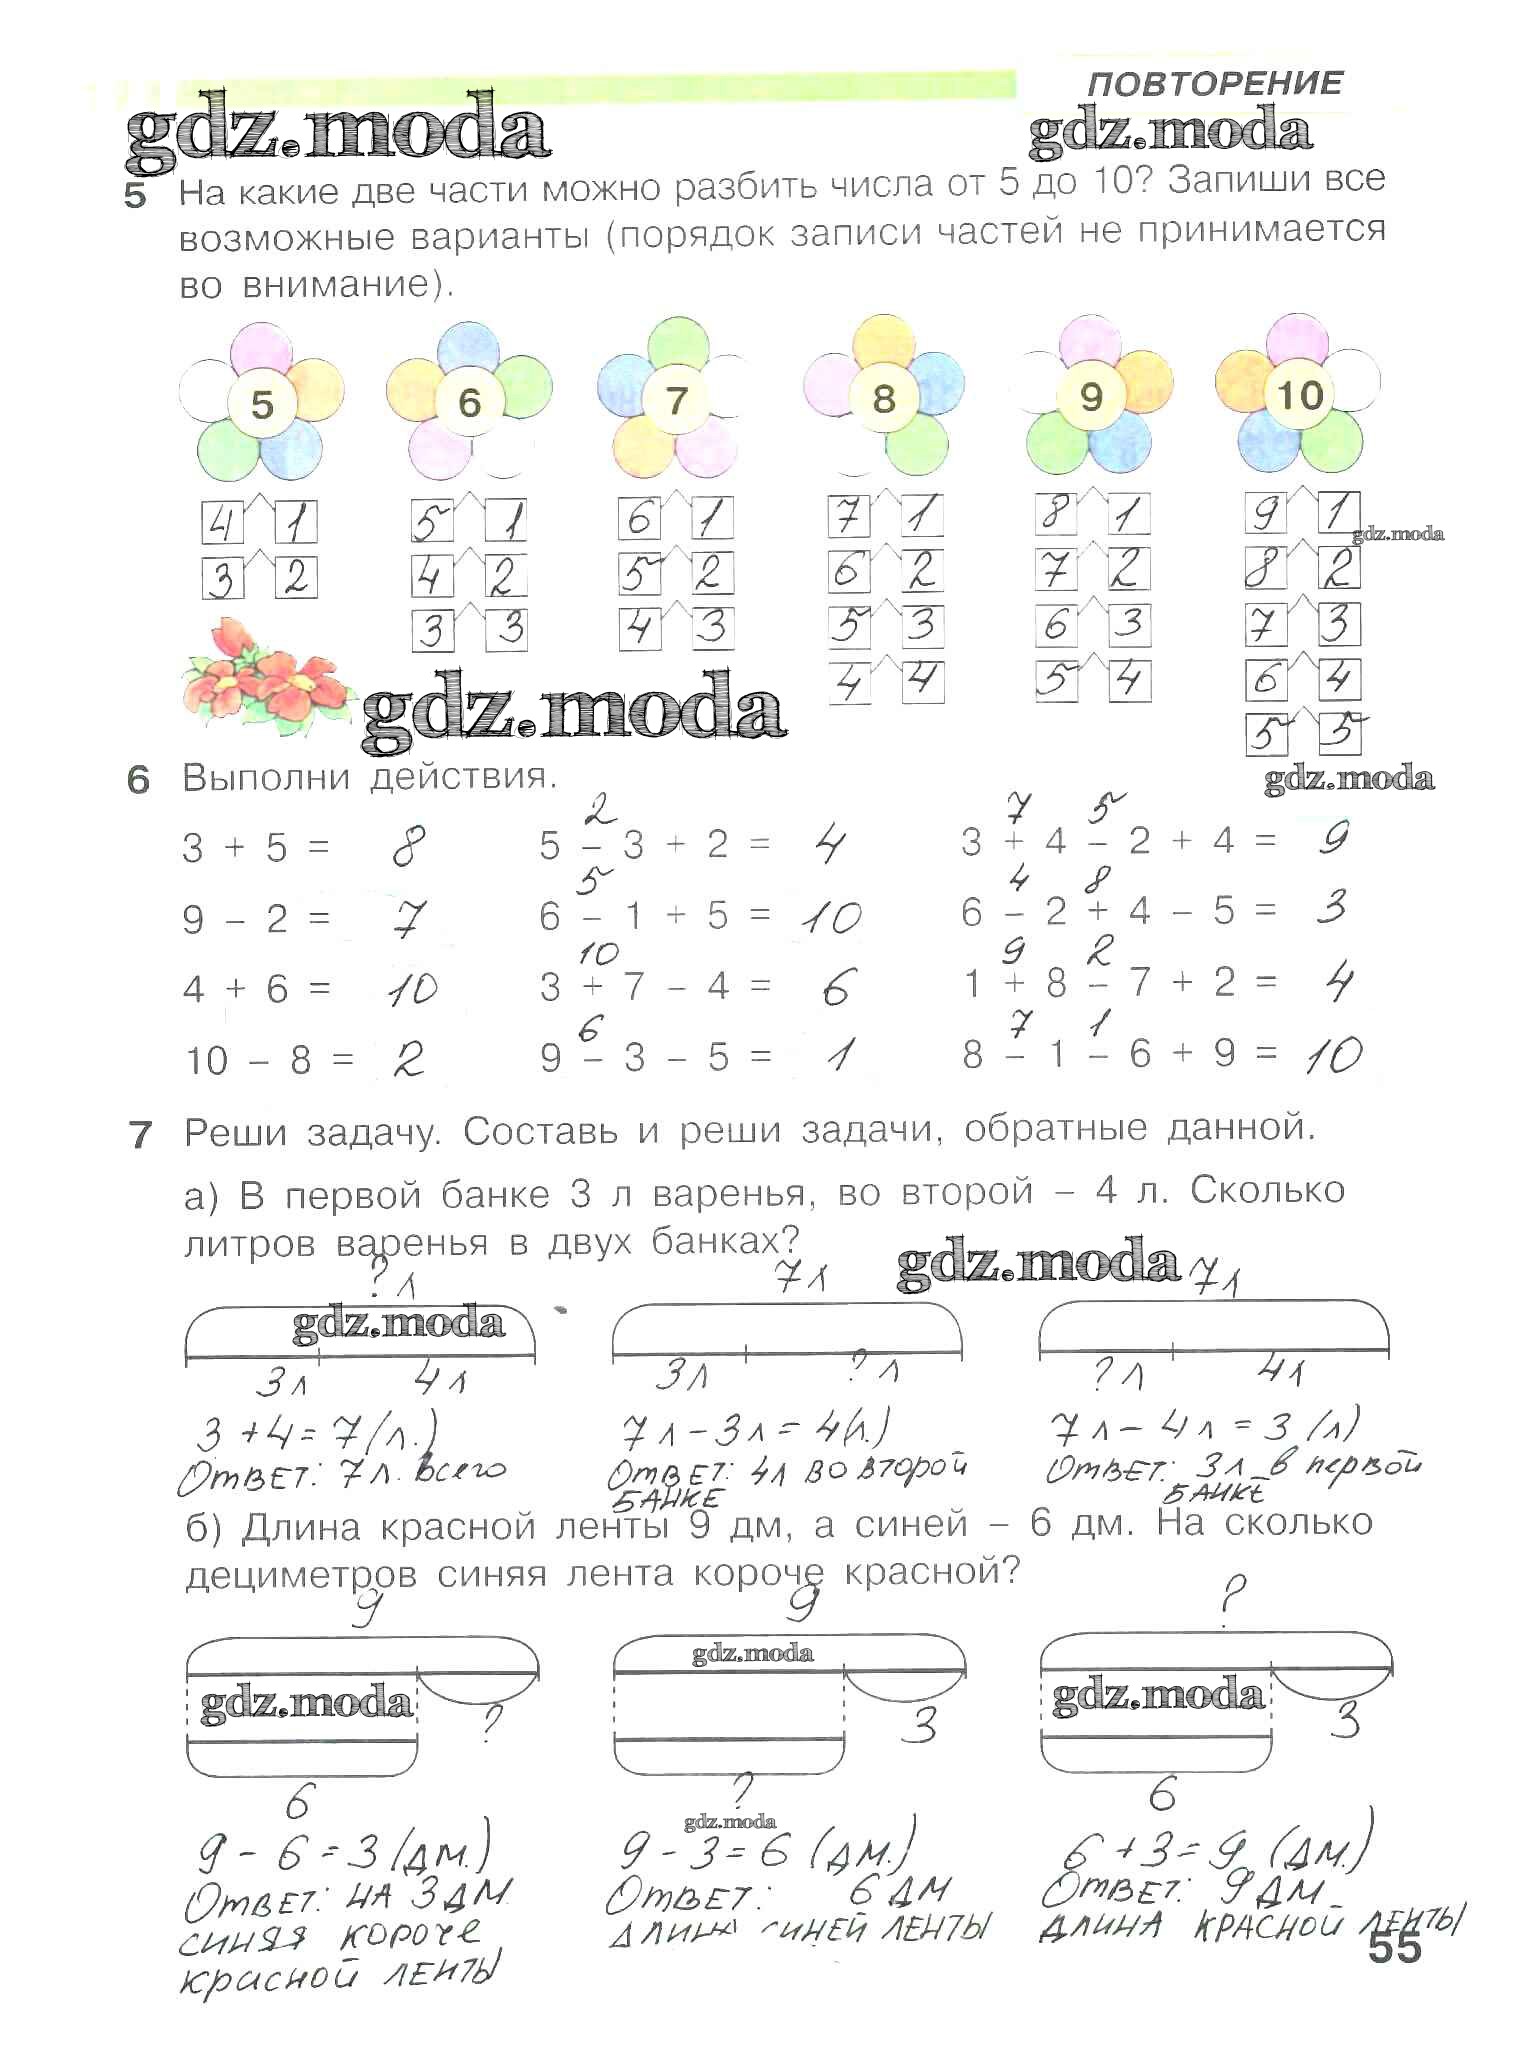 ПОВТОРЕНИЕ
gdz.moda gdz.moda
5 На какие две части можно разбить числа от 5 до 10? Запиши все
возможные варианты (порядок записи частей не принимается
во внимание).
5 6 7 8 9 10
4 1 5 1 6 1 7 1 8 1 9 1
gdz.moda
3 2 4 2 5 2 6 2 7 2 8 2
3 3 4 3 5 3 6 3 7 3
4 4 5 4 6 4
gdz.moda
5 5
6 Выполни действия.
gdz.moda
2 7 5
3 + 5 = 8 5 – 3 + 2 = 4 3 + 4 – 2 + 4 = 9
5 4 8
9 – 2 = 7 6 – 1 + 5 = 10 6 – 2 + 4 – 5 = 3
10 9 2
4 + 6 = 10 3 + 7 – 4 = 6 1 + 8 – 7 + 2 = 4
6 7 1
10 – 8 = 2 9 – 3 – 5 = 1 8 – 1 – 6 + 9 = 10
7 Реши задачу. Составь и реши задачи, обратные данной.
а) В первой банке 3 л варенья, во второй – 4 л. Сколько
литров варенья в двух банках?
gdz.moda
? л 7 л 7 л
gdz.moda
3 л 4 л 3 л ? л ? л 4 л
3 + 4 = 7 (л.) 7 л – 3 л = 4 (л.) 7 л – 4 л = 3 (л)
Ответ: 7 л. всего Ответ: 4 л во второй Ответ: 3 л в первой
банке банке
б) Длина красной ленты 9 дм, а синей – 6 дм. На сколько
дециметров синяя лента короче красной?
9 9 ?
gdz.moda
gdz.moda gdz.moda
? 3 3
6 ? 6
gdz.moda
9 – 6 = 3 (дм.) 9 – 3 = 6 (дм.) 6 + 3 = 9 (дм.)
Ответ: на 3 дм. Ответ: 6 дм Ответ: 9 дм
синяя короче длина синей ленты длина красной ленты
красной ленты
55